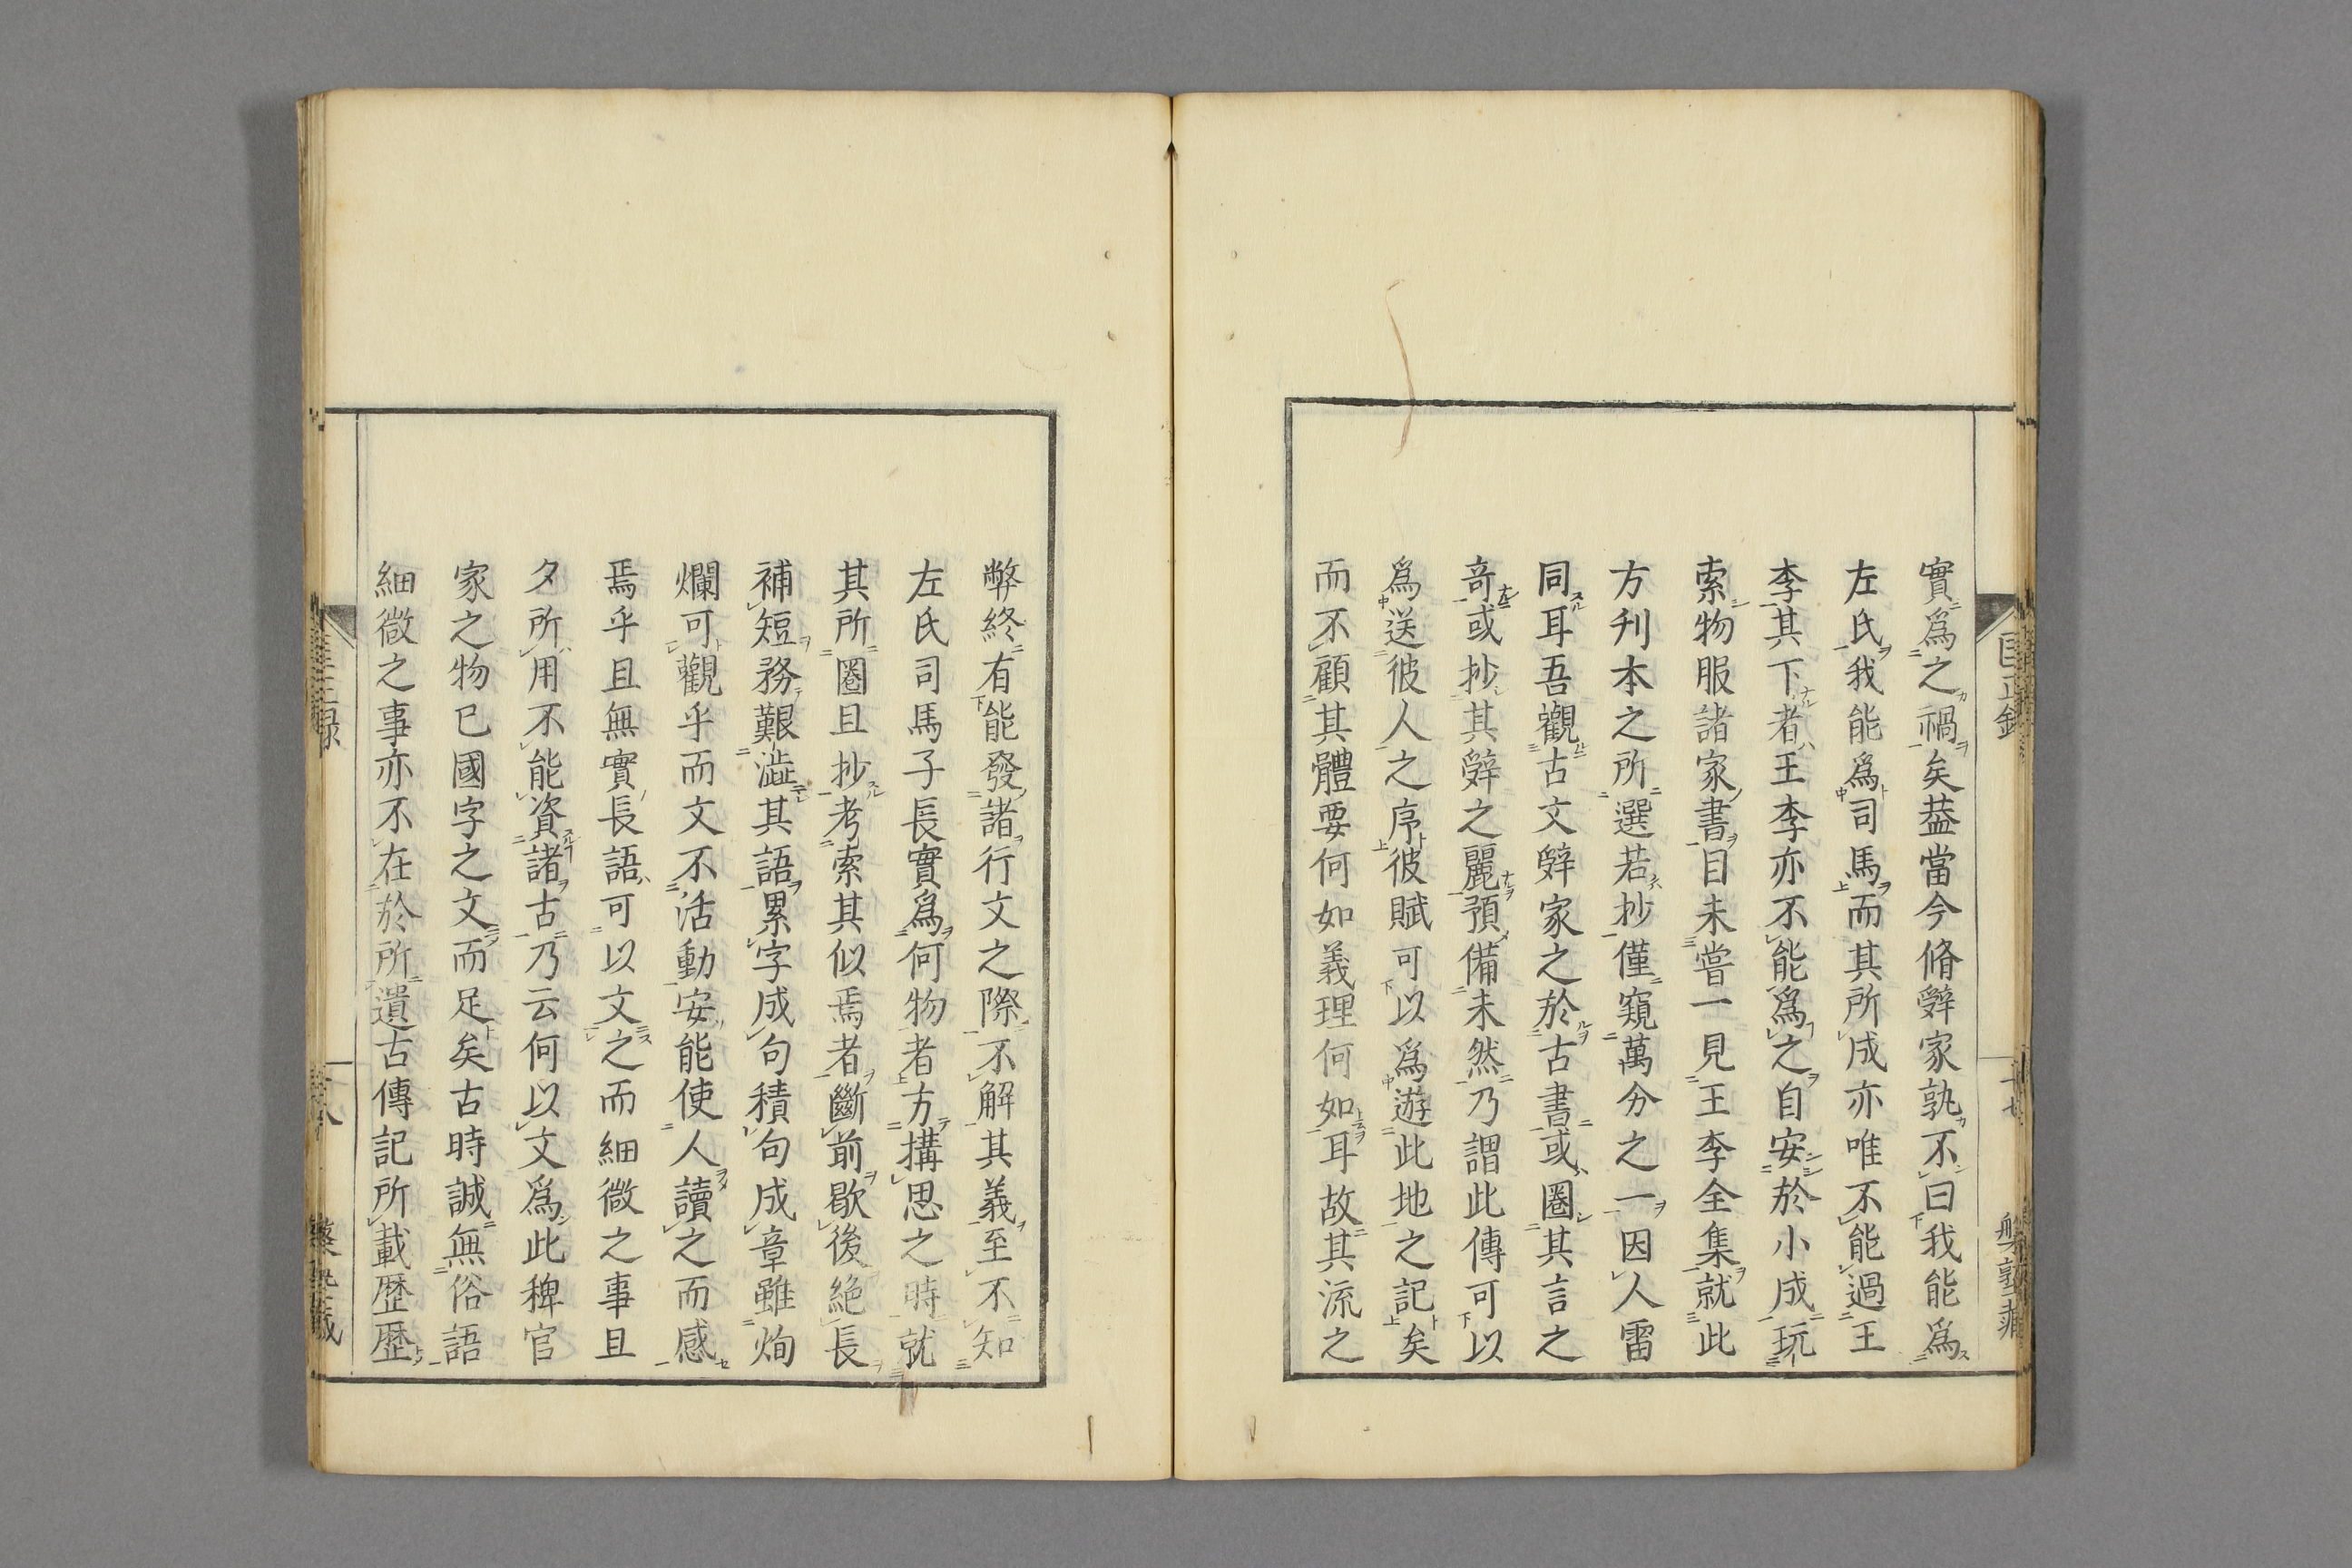 實爲之禍矣葢當今脩辭家孰不曰我能爲
左氏我能爲司馬而其所成亦唯不能過王
李其下者王李亦不能爲之自安於小成玩
索物服諸家書目未嘗一見王李全集就此
方刋本之所選若抄僅窺萬分之一因人雷
同耳吾觀古文辭家之於古書或圈其言之
竒或抄其辭之麗預備未然乃謂此傳可以
爲送彼人之序彼賦可以爲遊此地之記矣
而不顧其體要何如義理何如耳故其流之
弊終有能發諸行文之際不解其義至不知
左氏司馬子長實爲何物者方搆思之時就
其所圈且抄考索其似焉者斷前歇後絶長
補短務艱澁其語累字成句積句成章雖焖
爛可觀乎而文不活動安能使人讀之而感
焉乎且無實長語可以文之而細微之事且
夕所用不能資諸古乃云何以文爲此稗官
家之物已國字之文而足矣古時誠無俗語
細微之事亦不在於所遺古傳記所載歴歴